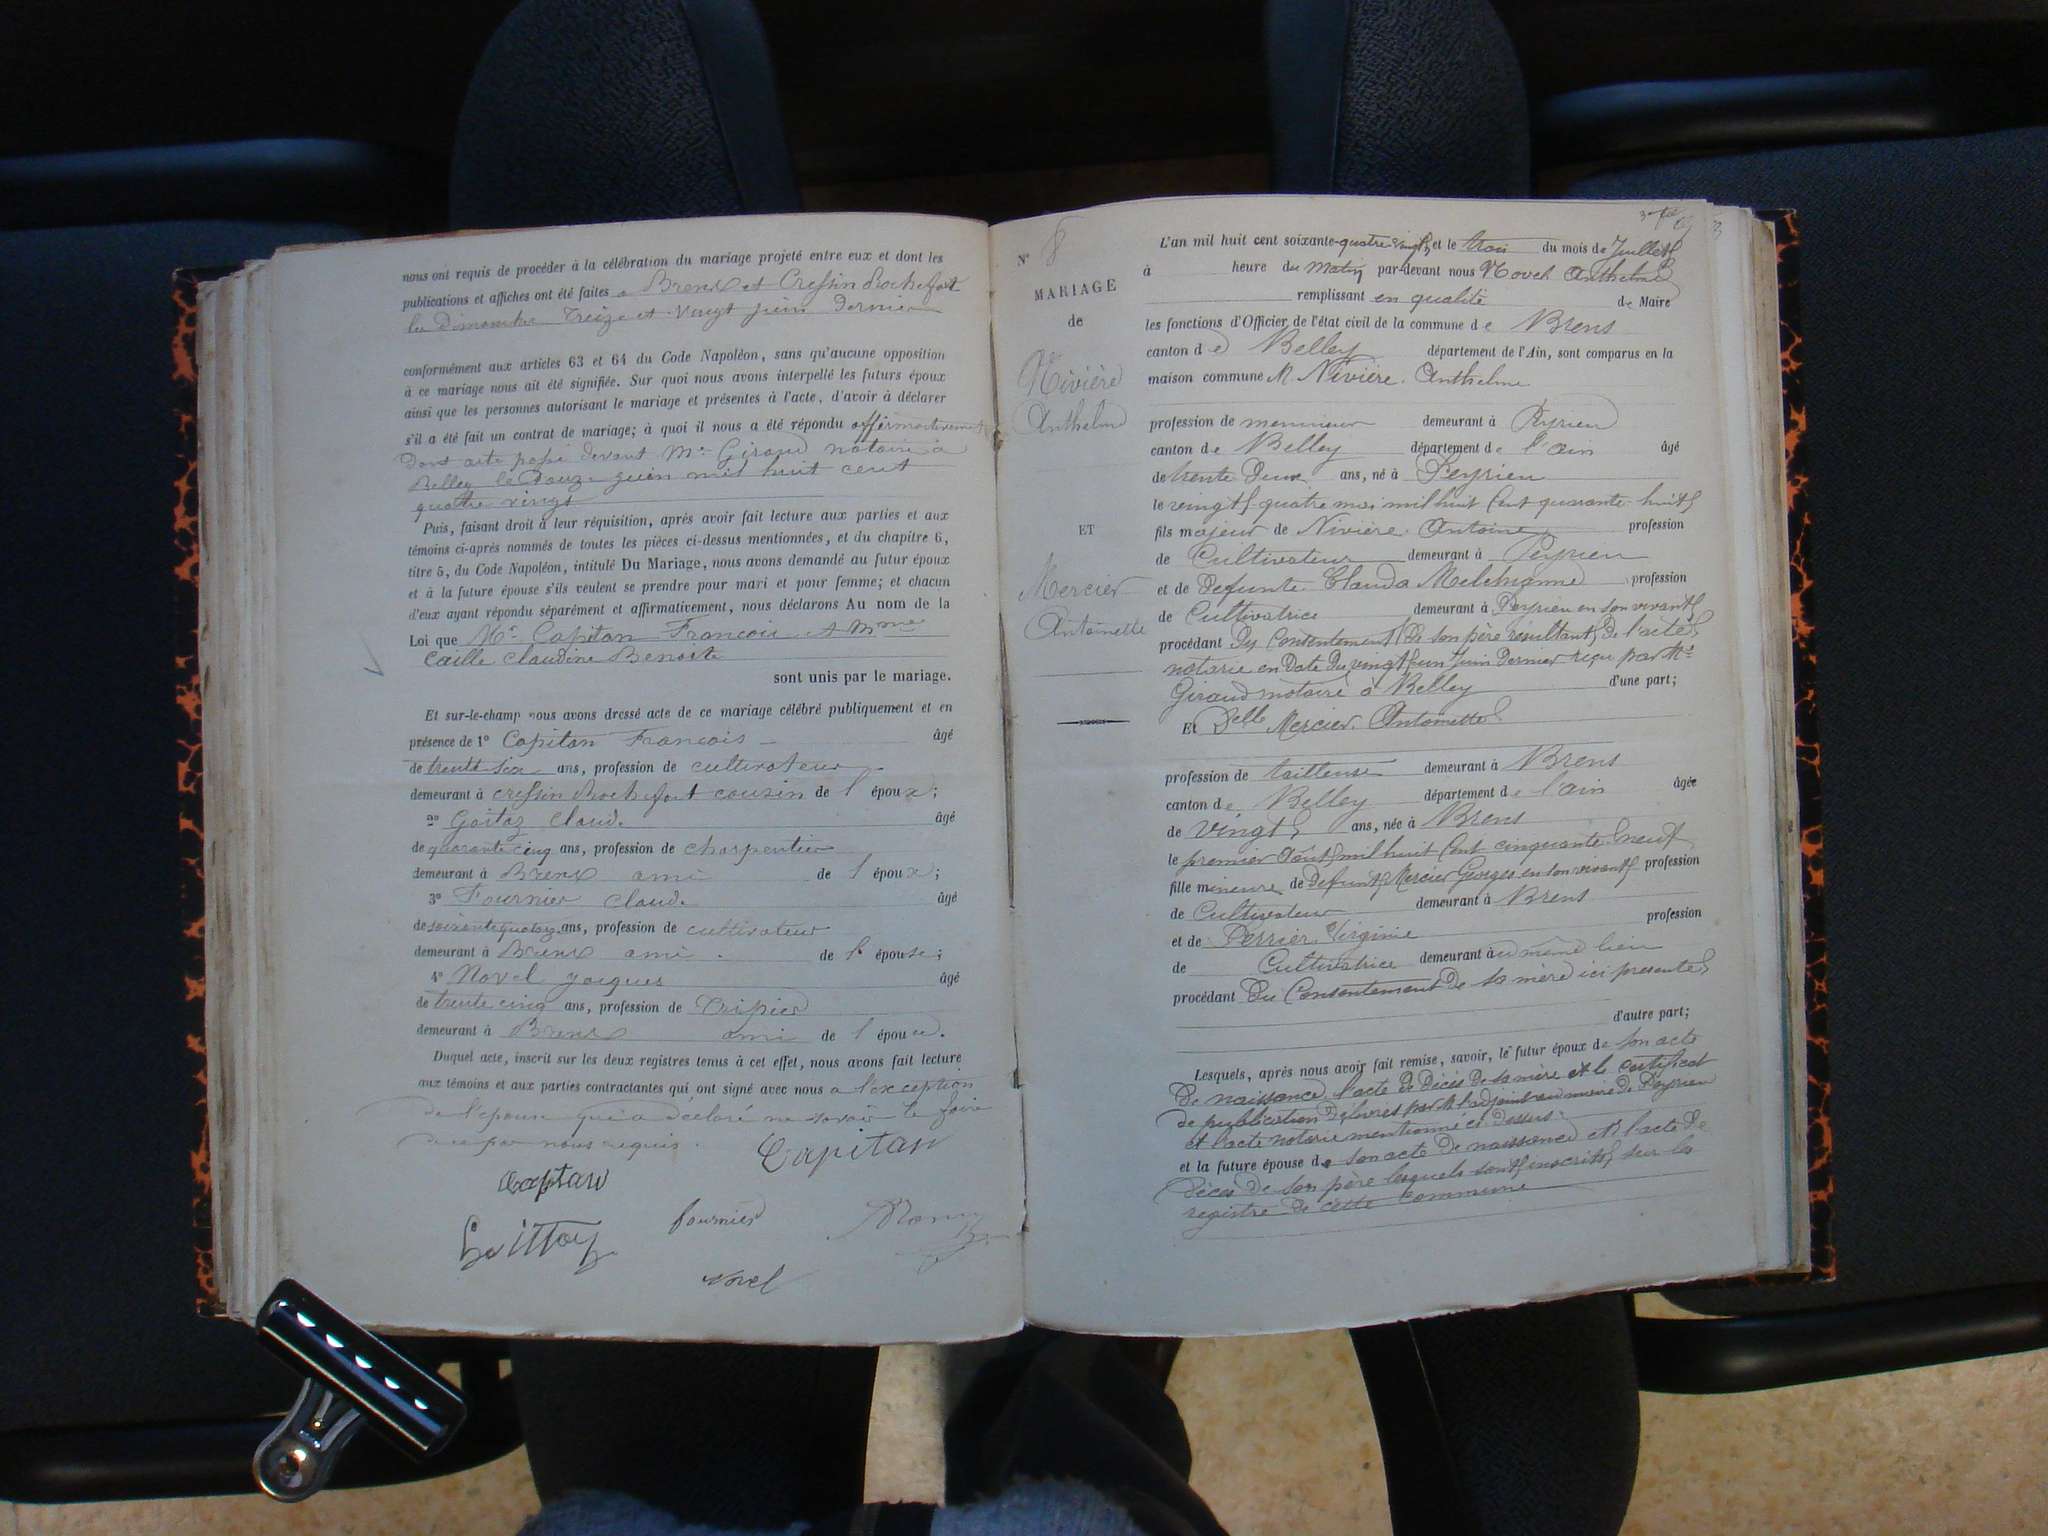 nous ont requis de procéder à la célébration du mariage projeté entre eux et dont les
publications et affiches ont été faites a Brens et Cressin Rochefort
les Dimanches Treize et Vingt juin Dernier
conformément aux articles 63 et 64 du Code Napoléon, sans qu'aucune opposition
à ce mariage nous ait été signifiée. Sur quoi nous avons interpellé les futurs époux
ainsi que les personnes autorisant le mariage et présentes à l'acte, d'avoir à déclarer
s'il a été fait un contrat de mariage; à quoi il nous a été répondu affirmativement
Dont acte passé devant Me Giraud notaire à
Belley le Douze juin mil huit cent
quatre vingt
Puis, faisant droit à leur réquisition, après avoir fait lecture aux parties et aux
témoins ci-après nommés de toutes les pièces ci-dessus mentionnées, et du chapitre 6,
titre 5, du Code Napoléon, intitulé Du Mariage, nous avons demandé au futur époux
et à la future épouse s'ils veulent se prendre pour mari et pour femme; et chacun
d'eux ayant répondu séparément et affirmativement, nous déclarons Au nom de la
Loi que Mr Capitan François et Mme
Caille Claudine Benoite
sont unis par le mariage.
Et sur-le-champ nous avons dressé acte de ce mariage célébré publiquement et en
présence de 1° Capitan François âgé
de trente six ans, profession de cultivateur
demeurant à Cressin Rochefort cousin de l'époux;
2° Goitaz Claude âgé
de quarante cinq ans, profession de charpentier
demeurant à Brens ami de l'époux;
3° Fournier Claude âgé
de soixante quatorze ans, profession de cultivateur
demeurant à Brens ami de l'épouse;
4° Novel Jacques âgé
de trente cinq ans, profession de
demeurant à Brens ami de l'épouse.
Duquel acte, inscrit sur les deux registres tenus à cet effet, nous avons fait lecture
aux témoins et aux parties contractantes qui ont signé avec nous a l'exception
de l'épouse qui a déclaré ne savoir le faire
de ce par nous requis.
Capitan
Capitan
fournier
Novel
N° 8
MARIAGE
de
Nivière
Anthelme
ET
Mercier
Antoinette
L'an mil huit cent soixante-quatre vingt, et le trois du mois de Juillet
à heure du Matin par-devant nous Novel Anthelme
remplissant en qualité de Maire
les fonctions d'Officier de l'état civil de la commune de Brens
canton de Belley département de l'Ain, sont comparus en la
maison commune M. Nivière Anthelme
profession de menuisier demeurant à Peyrieu
canton de Belley département de l'ain âgé
de trente Deux ans, né à Peyrieu
le vingt quatre mai mil huit Cent quarante huit
fils majeur de Nivière Antoine profession
de Cultivateur demeurant à Peyrieu
et de Defunte Clauda Melchianne profession
de Cultivatrice demeurant à Peyrieu en son vivant
procédant Du Consentement De son père résultant De l'acte
notarié en Date Du vingt un Juin Dernier reçu par Me
Giraud notaire à Belley d'une part;
Et Delle Mercier Antoinette
profession de tailleuse demeurant à Brens
canton de Belley département de l'ain âgée
de Vingt ans, née à Brens
le premier Août mil huit Cent cinquante neuf
fille mineure de Defunt Mercier Georges en son vivant profession
de Cultivateur demeurant à Brens
et de Perrier Virginie profession
de Cultivatrice demeurant au même lieu
procédant Du Consentement De sa mère ici presente
d'autre part;
Lesquels, après nous avoir fait remise, savoir, le futur époux de son acte
De naissance, l'acte de Décès De sa mère et le certificat
de publication Délivrés par M. l'adjoint au maire de Peyrieu
et l'acte notarié mentionné ci Dessus
et la future épouse de son acte De naissance et l'acte De
Décès De son père lesquels sont inscrits sur les
registre De cette commune